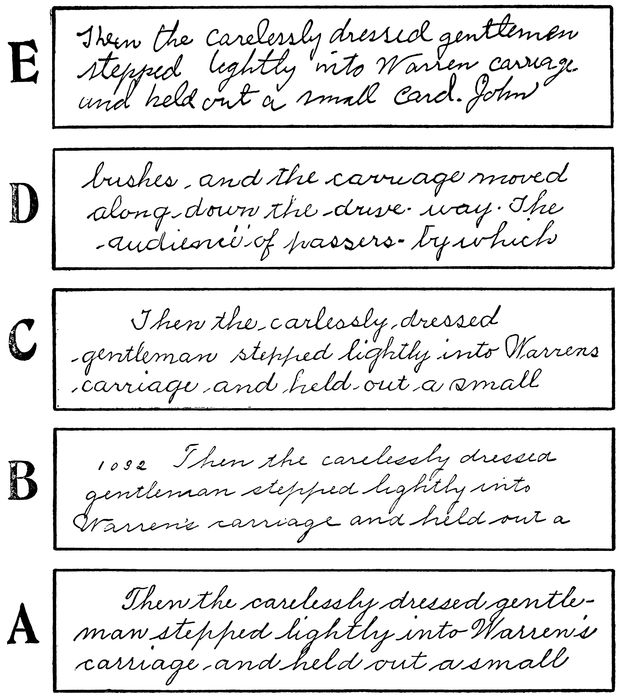 E
Then the carelessly dressed gentlemen
stepped lightly into Warren carriage
and held out a small card. John
D
bushes, and the carriage moved
along down the drive-way. The
audience of passers-by which
C
Then the carlessly dressed
gentleman stepped lightly into Warrens
carriage and held out a small
B
1032 Then the carelessly dressed
gentleman stepped lightly into
Warren's carriage and held out a
A
Then the carelessly dressed gentle-
man stepped lightly into Warren's
carriage, and held out a small